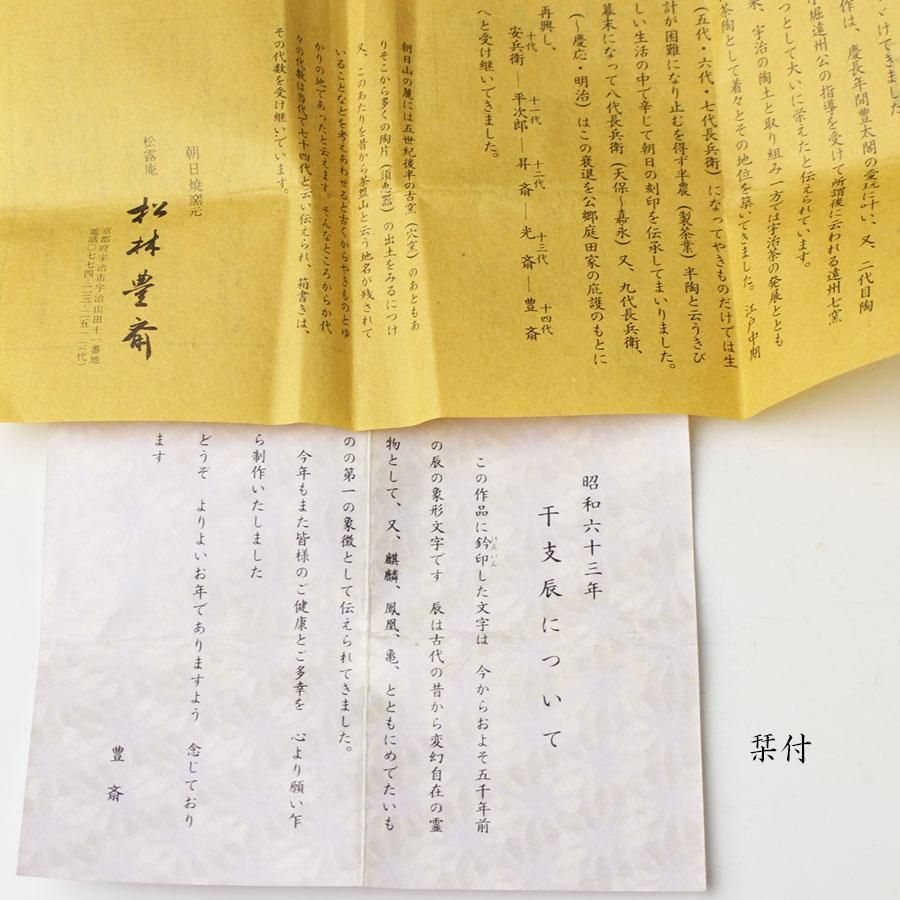 ゞけてきました
作は、慶長年間豊太閤の愛玩に叶い、又、二代目陶
小堀遠州公の指導を受けて所謂後に云われる遠州七窯
つとして大いに栄えたと伝えられています。
来、宇治の陶土と取り組み一方では宇治茶の発展ととも
茶陶として着々とその地位を築いてきました。江戸中期
(五代・六代・七代長兵衛)になってやきものだけでは生
計が困難になり止むを得ず半農(製茶業)半陶と云うきび
しい生活の中で辛じて朝日の刻印を伝承してまいりました。
幕末になって八代長兵衛(天保〜嘉永)又、九代長兵衛、
(〜慶応・明治)はこの衰退を公郷庭田家の庇護のもとに
再興し、
十代 十一代 十二代 十三代 十四代
安兵衛―平次郎―昇斎―光斎―豊斎
へと受け継いできました。
朝日山の麓には五世紀後半の古窯(穴窯)のあともあ
りそこから多くの陶片(須恵器)の出土をみるにつけ
又、このあたりを昔から茶盌山と云う地名が残されて
いることなどを考えあわせると古くからやきものとゆ
かりの地であったと云えます。そんなところからか代
々の代数は当代で七十四代と云い伝えられ、箱書きは、
その代数を受け継いでいます。
朝日焼窯元
松露庵 松林豊斎
京都府宇治市宇治山田十一番地
電話〇七七四-二三-二五一一(代)
昭和六十三年
干支辰について
この作品に鈐印した文字は 今からおよそ五千年前
けんいん
の辰の象形文字です 辰は古代の昔から変幻自在の霊
物として、又、麒麟、鳳凰、亀、とともにめでたいも
のの第一の象徴として伝えられてきました。
今年もまた皆様のご健康とご多幸を 心より願い乍
ら制作いたしました
どうぞ よりよいお年でありますよう 念じており
ます
豊斎
栞付